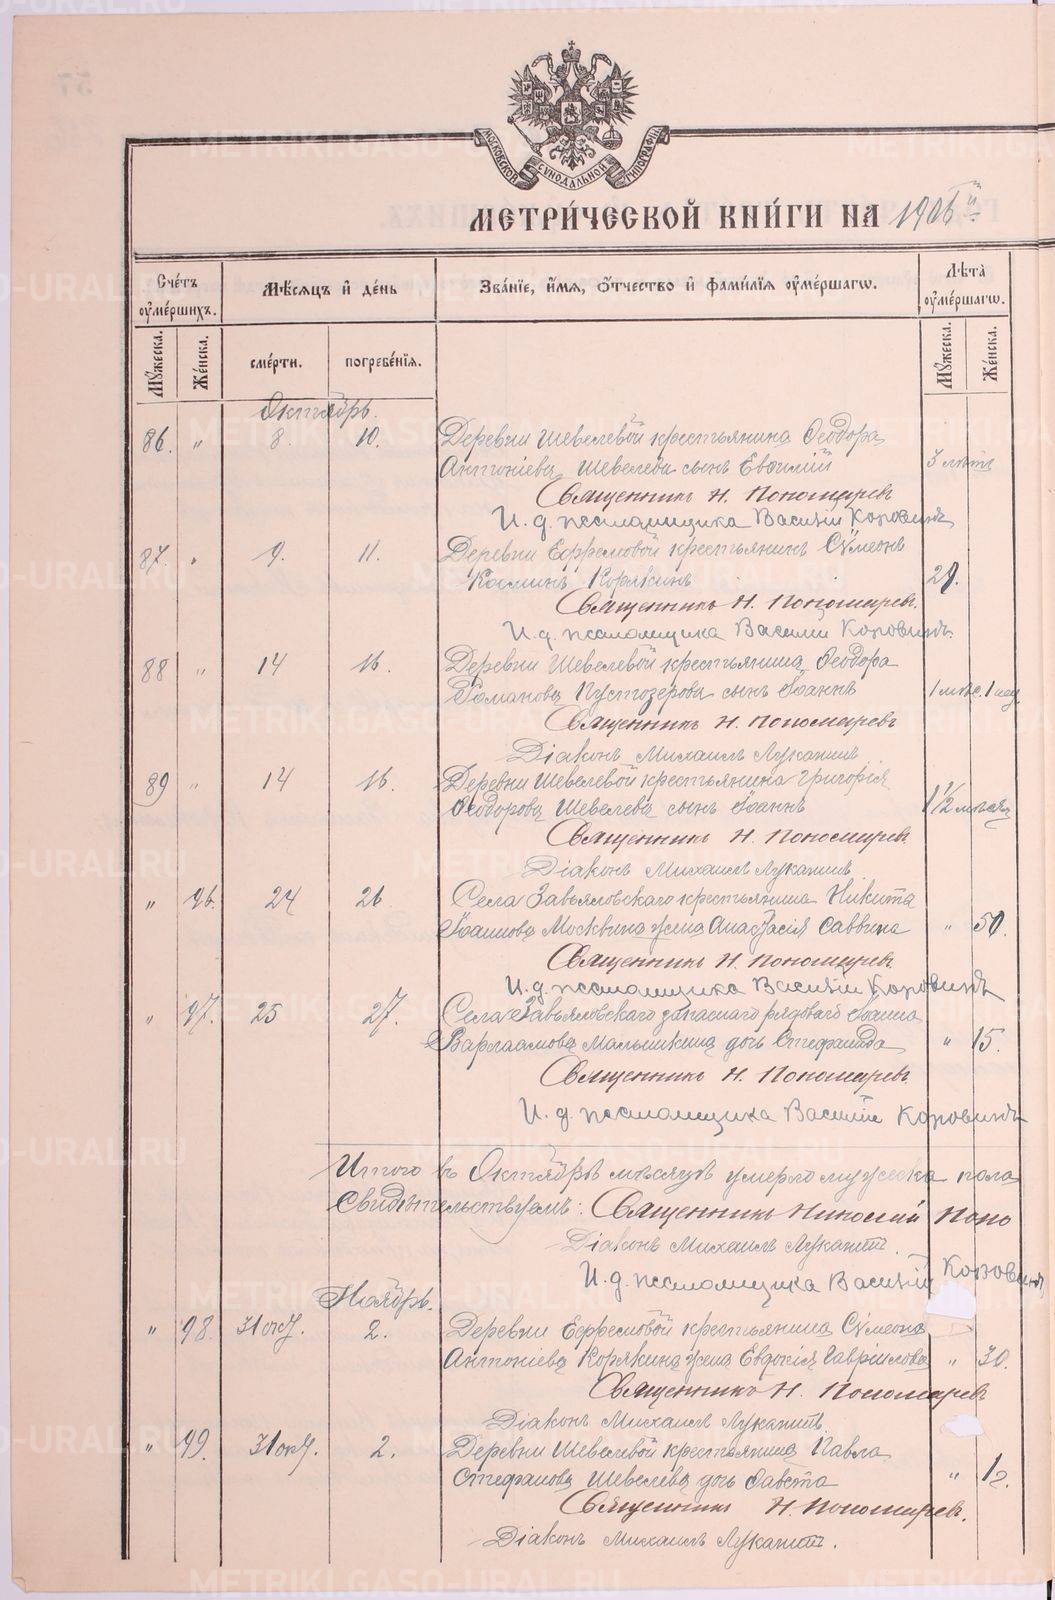 МОСКОВСКОЙ СѴНОДАЛЬНОЙ ТИПОГРАФІИ
МЕТРИ́ЧЕСКОЙ КНИ́ГИ НА 1906 й
Сче́тъ ᲂумершихъ. Мѣ́сяцъ и҆ де́нь Зва́нїе, и҆́мя, ѻ҆́тчество и҆ фами́лїя ᲂу҆ме́ршагѡ. Лѣта̀ ᲂу҆ме́ршагѡ.
Мꙋ́жеска. Же́нска. сме́рти. погребе́нїя. Мꙋ́жеска. Же́нска.
Октябрь.
86. " 8. 10. Деревни Шевелевой крестьянина Ѳеодора
Антоніева Шевелева сынъ Евѳимій 3 лѣтъ
Священникъ Н. Пономаревъ
И. д. псаломщика Василій Коровинъ
87. " 9. 11. Деревни Ефремовой крестьянинъ Сѵмеонъ
Косминъ Корякинъ
Священникъ Н. Пономаревъ.
И. д. псаломщика Василій Коровинъ.
88 " 14 16. Деревни Шевелевой крестьянина Ѳеодора
Романова Пустозерова сынъ Іоаннъ 1 мѣс. 1 нед.
Священникъ Н. Пономаревъ
Діаконъ Михаилъ Луканинъ
89 " 14 16. Деревни Шевелевой крестьянина Григорія
Ѳеодорова Шевелева сынъ Іоаннъ 1 1/2 мѣсяц
Священникъ Н. Пономаревъ.
Діаконъ Михаилъ Луканинъ
" 96. 24 26 Села Завьяловскаго крестьянина Никита
Іоаннова Москвина жена Анастасія Саввина " 50.
Священникъ Н. Пономаревъ.
И. д. псаломщика Василій Коровинъ
" 97. 25 27. Села Завьяловскаго запаснаго рядоваго Іоанна
Варлаамова Малышкина дочь Стефанида " 15.
Священникъ Н. Пономаревъ
И. д. псаломщика Василій Коровинъ
Итого въ Октябрѣ мѣсяцѣ умерло мужеска пола
Свидѣтельствуемъ: Священникъ Николай Поно
Діаконъ Михаилъ Луканинъ.
И. д. псаломщика Василій Коровинъ
Ноябрь.
" 98. 31 окт. 2. Деревни Ефремовой крестьянина Сѵмеона
Антоніева Корякина жена Евдокія Гавріилова " 30.
Священникъ Н. Пономаревъ
Діаконъ Михаилъ Луканинъ.
" 99. 31 окт. 2. Деревни Шевелевой крестьянина Павла
Стефанова Шевелева дочь "
Священникъ Н. Пономаревъ.
Діаконъ Михаилъ Луканинъ.
METRIKI.GASO-URAL.RU